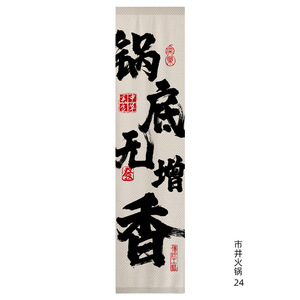 锅底无增香
市井火锅
24